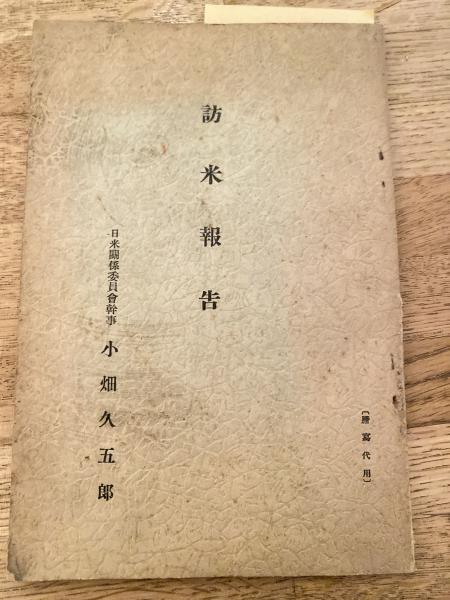 〔謄寫代用〕
訪米報告
日米關係委員會幹事 小畑久五郎